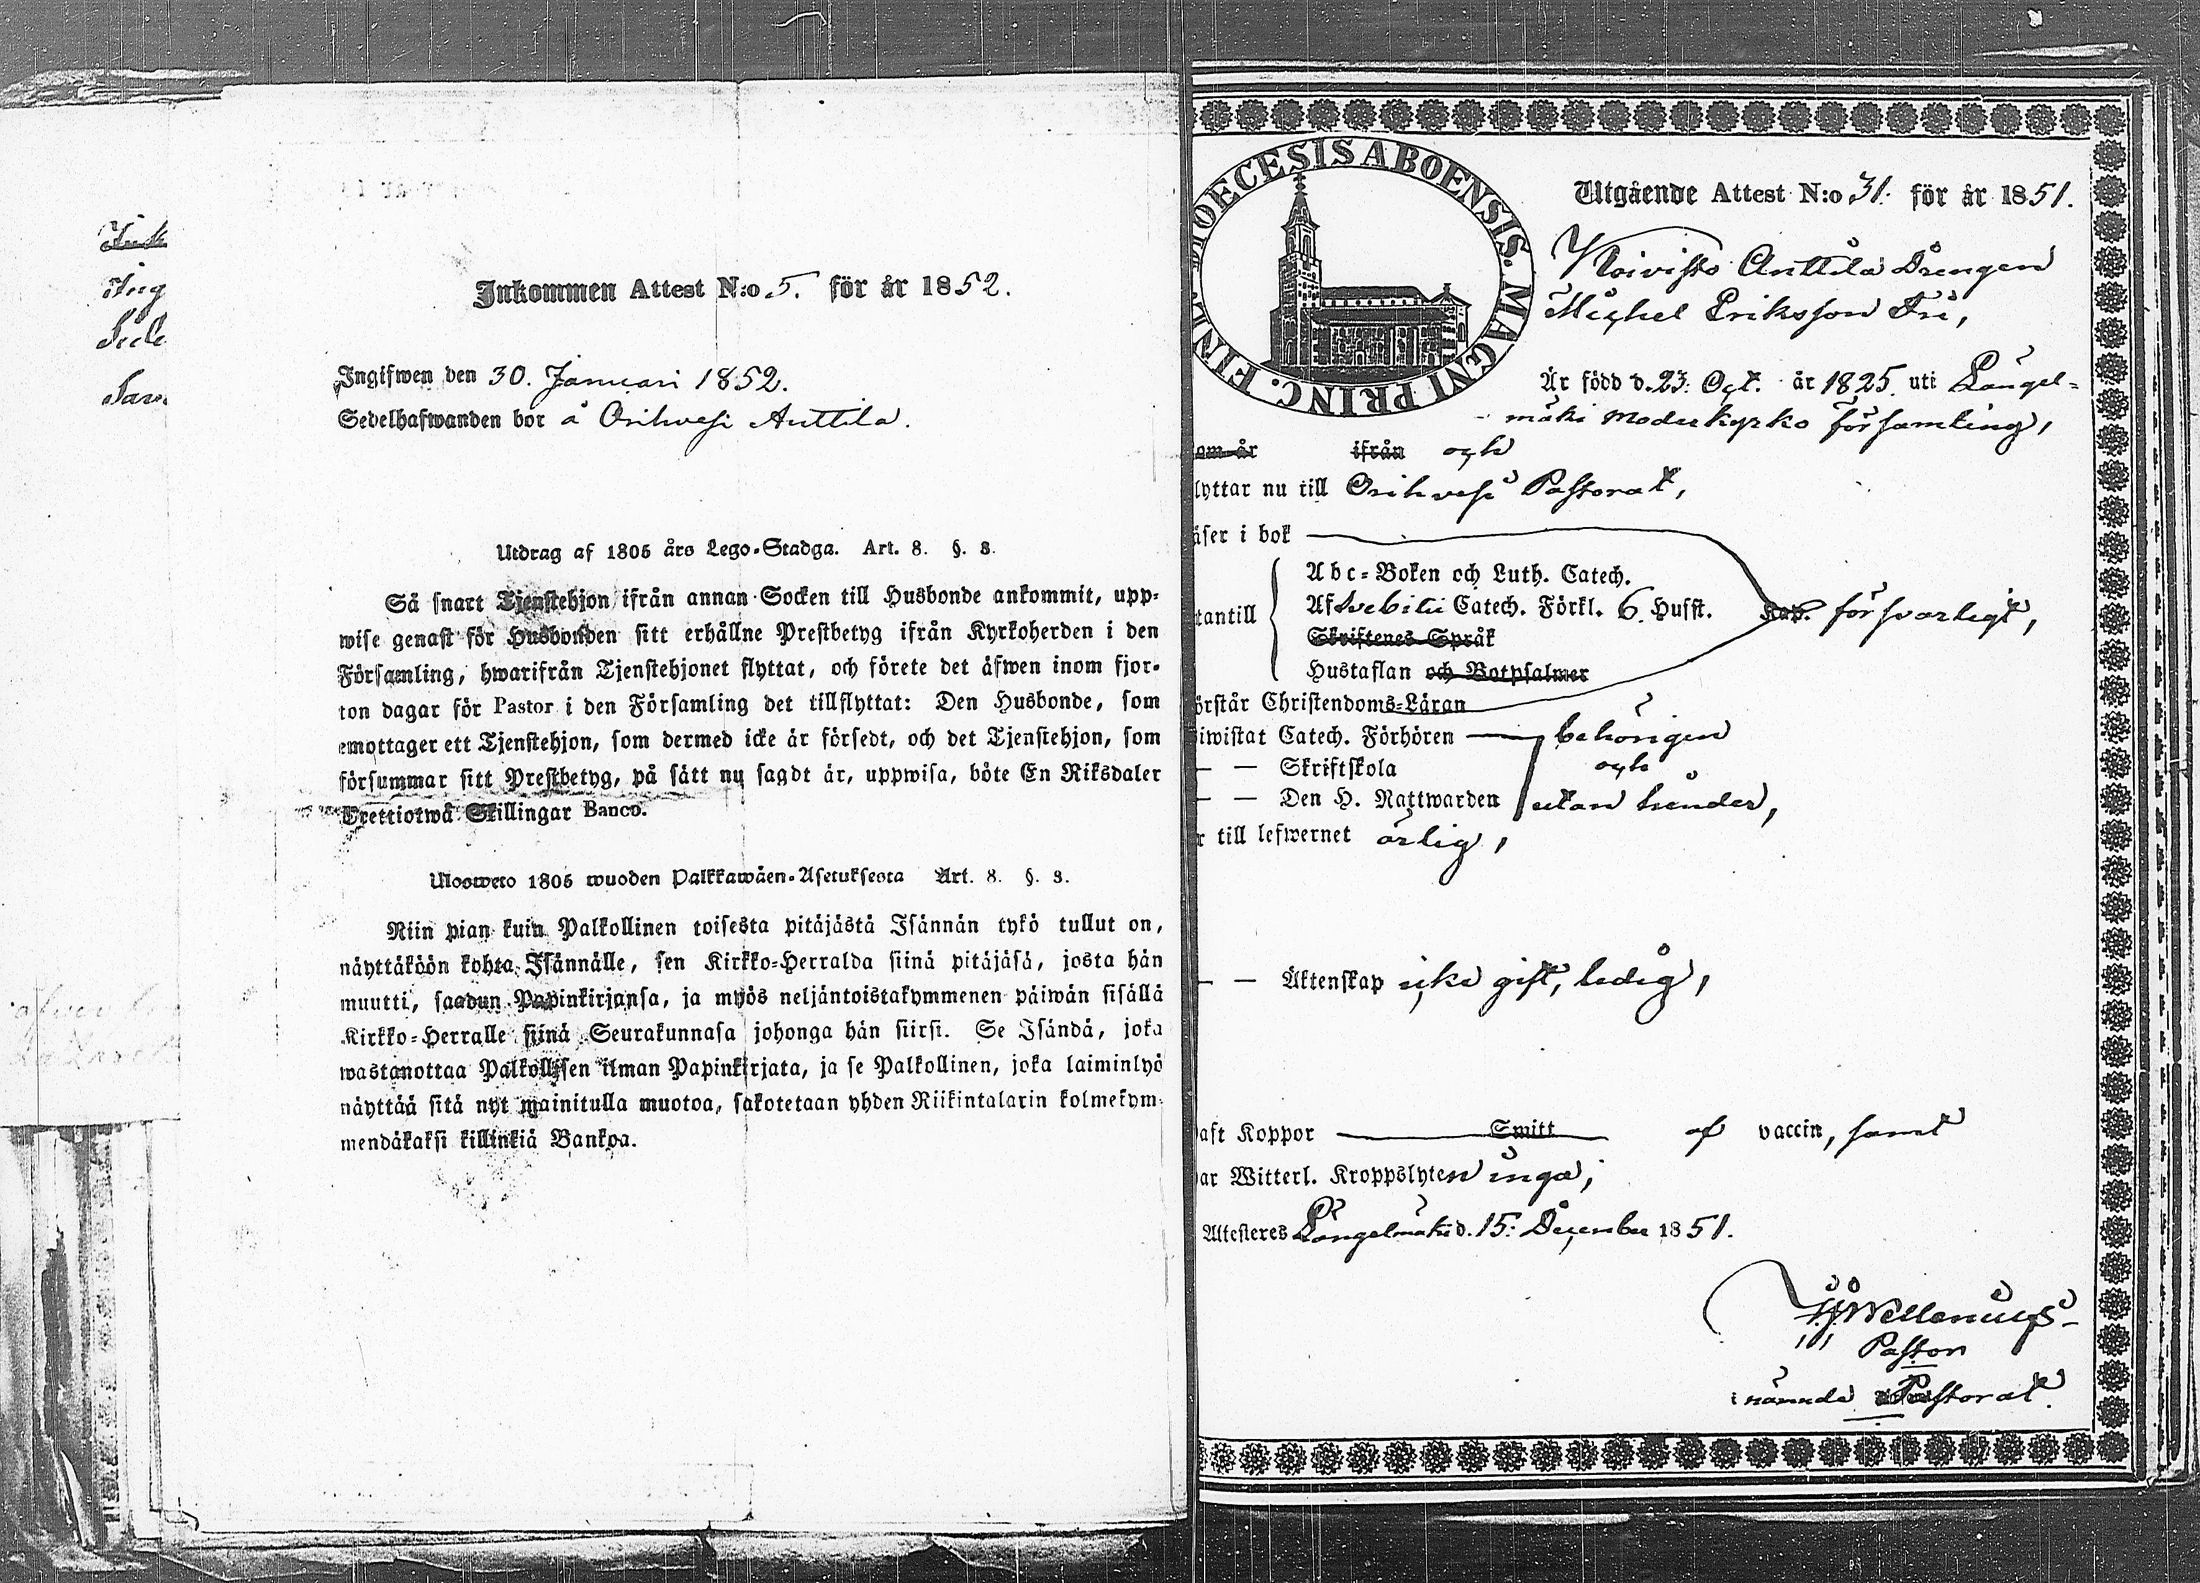 Inkommen Attest N:o 5. för år 1852.
Ingifwen den 30. Januari 1852.
Sedelhafwanden bor å Orihvesi Anttila.
Utdrag af 1805 års Lego-Stadga. Art. 8. §. 3.
Så snart Tjenstehjon ifrån annan Socken till Husbonde ankommit, upp-
wise genast för Husbonden sitt erhållne Prestbetyg ifrån Kyrkoherden i den
Församling, hwarifrån Tjenstehjonet flyttat, och förete det äfwen inom fjor-
ton dagar för Pastor i den Församling det tillflyttat: Den Husbonde, som
emottager ett Tjenstehjon, som dermed icke är försedt, och det Tjenstehjon, som
försummar sitt Prestbetyg, på sätt nu sagdt är, uppwisa, böte En Riksdaler
Trettiotwå Skillingar Banco.
Ulosweto 1805 wuoden Palkkawäen-Asetuksesta Art. 8. §. 3.
Niin pian kuin Palkollinen toisesta pitäjästä Isännän tykö tullut on,
näyttäköön kohta Isännälle, sen Kirkko-Herralda siinä pitäjäsä, josta hän
muutti, saadun Papinkirjansa, ja myös neljäntoistakymmenen päiwän sisällä
Kirkko-Herralle siinä Seurakunnasa johonga hän siirsi. Se Isändä, joka
wastanottaa Palkollisen ilman Papinkirjata, ja se Palkollinen, joka laiminlyö
näyttää sitä nyt mainitulla muotoa, sakotetaan yhden Riikintalarin kolmekym-
mendäkaksi killinkiä Bankoa.
DIOECESIS ABOENSIS. MAGNI PRINC. FINL.
Utgående Attest N:o 31. för år 1851.
Koivisto Anttila Drengen
Michel Eriksson Fri,
Är född d. 23: Oct. år 1825. uti Längel-
mäki Moderkyrko församling,
om år ifrån och
lyttar nu till Orihvesi Pastorat,
äser i bok
Abc-Boken och Luth. Catech.
tantill Af Svebilii Catech. Förkl. 6. Hufst. Kap. försvarligt,
Skriftenes Språk
Hustaflan och Botpsalmer
örstår Christendoms-Läran
iwistat Catech. Förhören behörigen
— — Skriftskola och
— — Den H. Nattwarden utan hinder,
r till lefwernet ärlig,
— — Äktenskap icke gift, ledig,
aft Koppor Smitt af vaccin, samt
ar Witterl. Kroppslyten inga;
Attesteres Längelmäki d. 15: December 1851.
Wellenius
Pastor
i nämnde Pastorat.